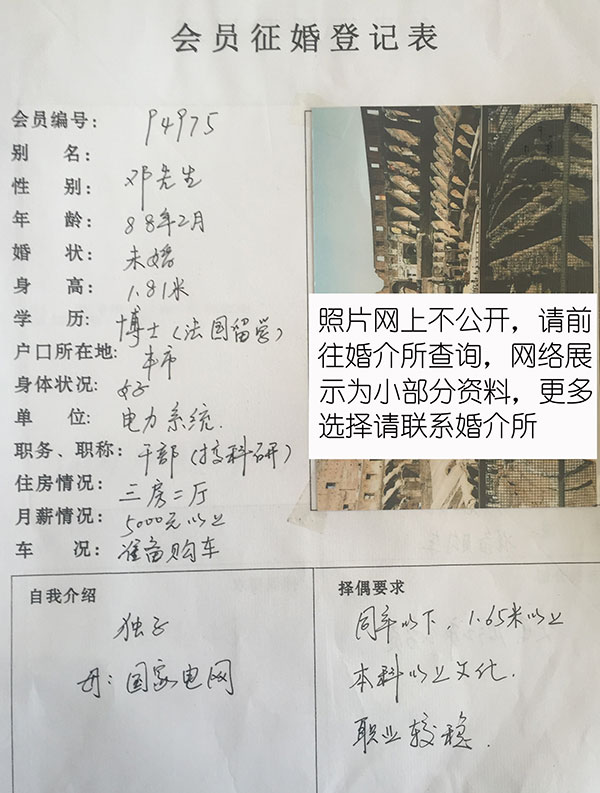 会员征婚登记表
会员编号: P4975
别 名:
性 别: 邓先生
年 龄: 88年2月
婚 状: 未婚
身 高: 1.81米
学 历: 博士(法国留学)
户口所在地: 本市
身体状况: 好
单 位: 电力系统.
职务、职称: 干部(搞科研)
住房情况: 三房二厅
月薪情况: 5000元以上
车 况: 准备购车
照片网上不公开，请前
往婚介所查询，网络展
示为小部分资料，更多
选择请联系婚介所
自我介绍
独子
母: 国家电网
择偶要求
同年以下, 1.65米以上
本科以上文化.
职业较稳.